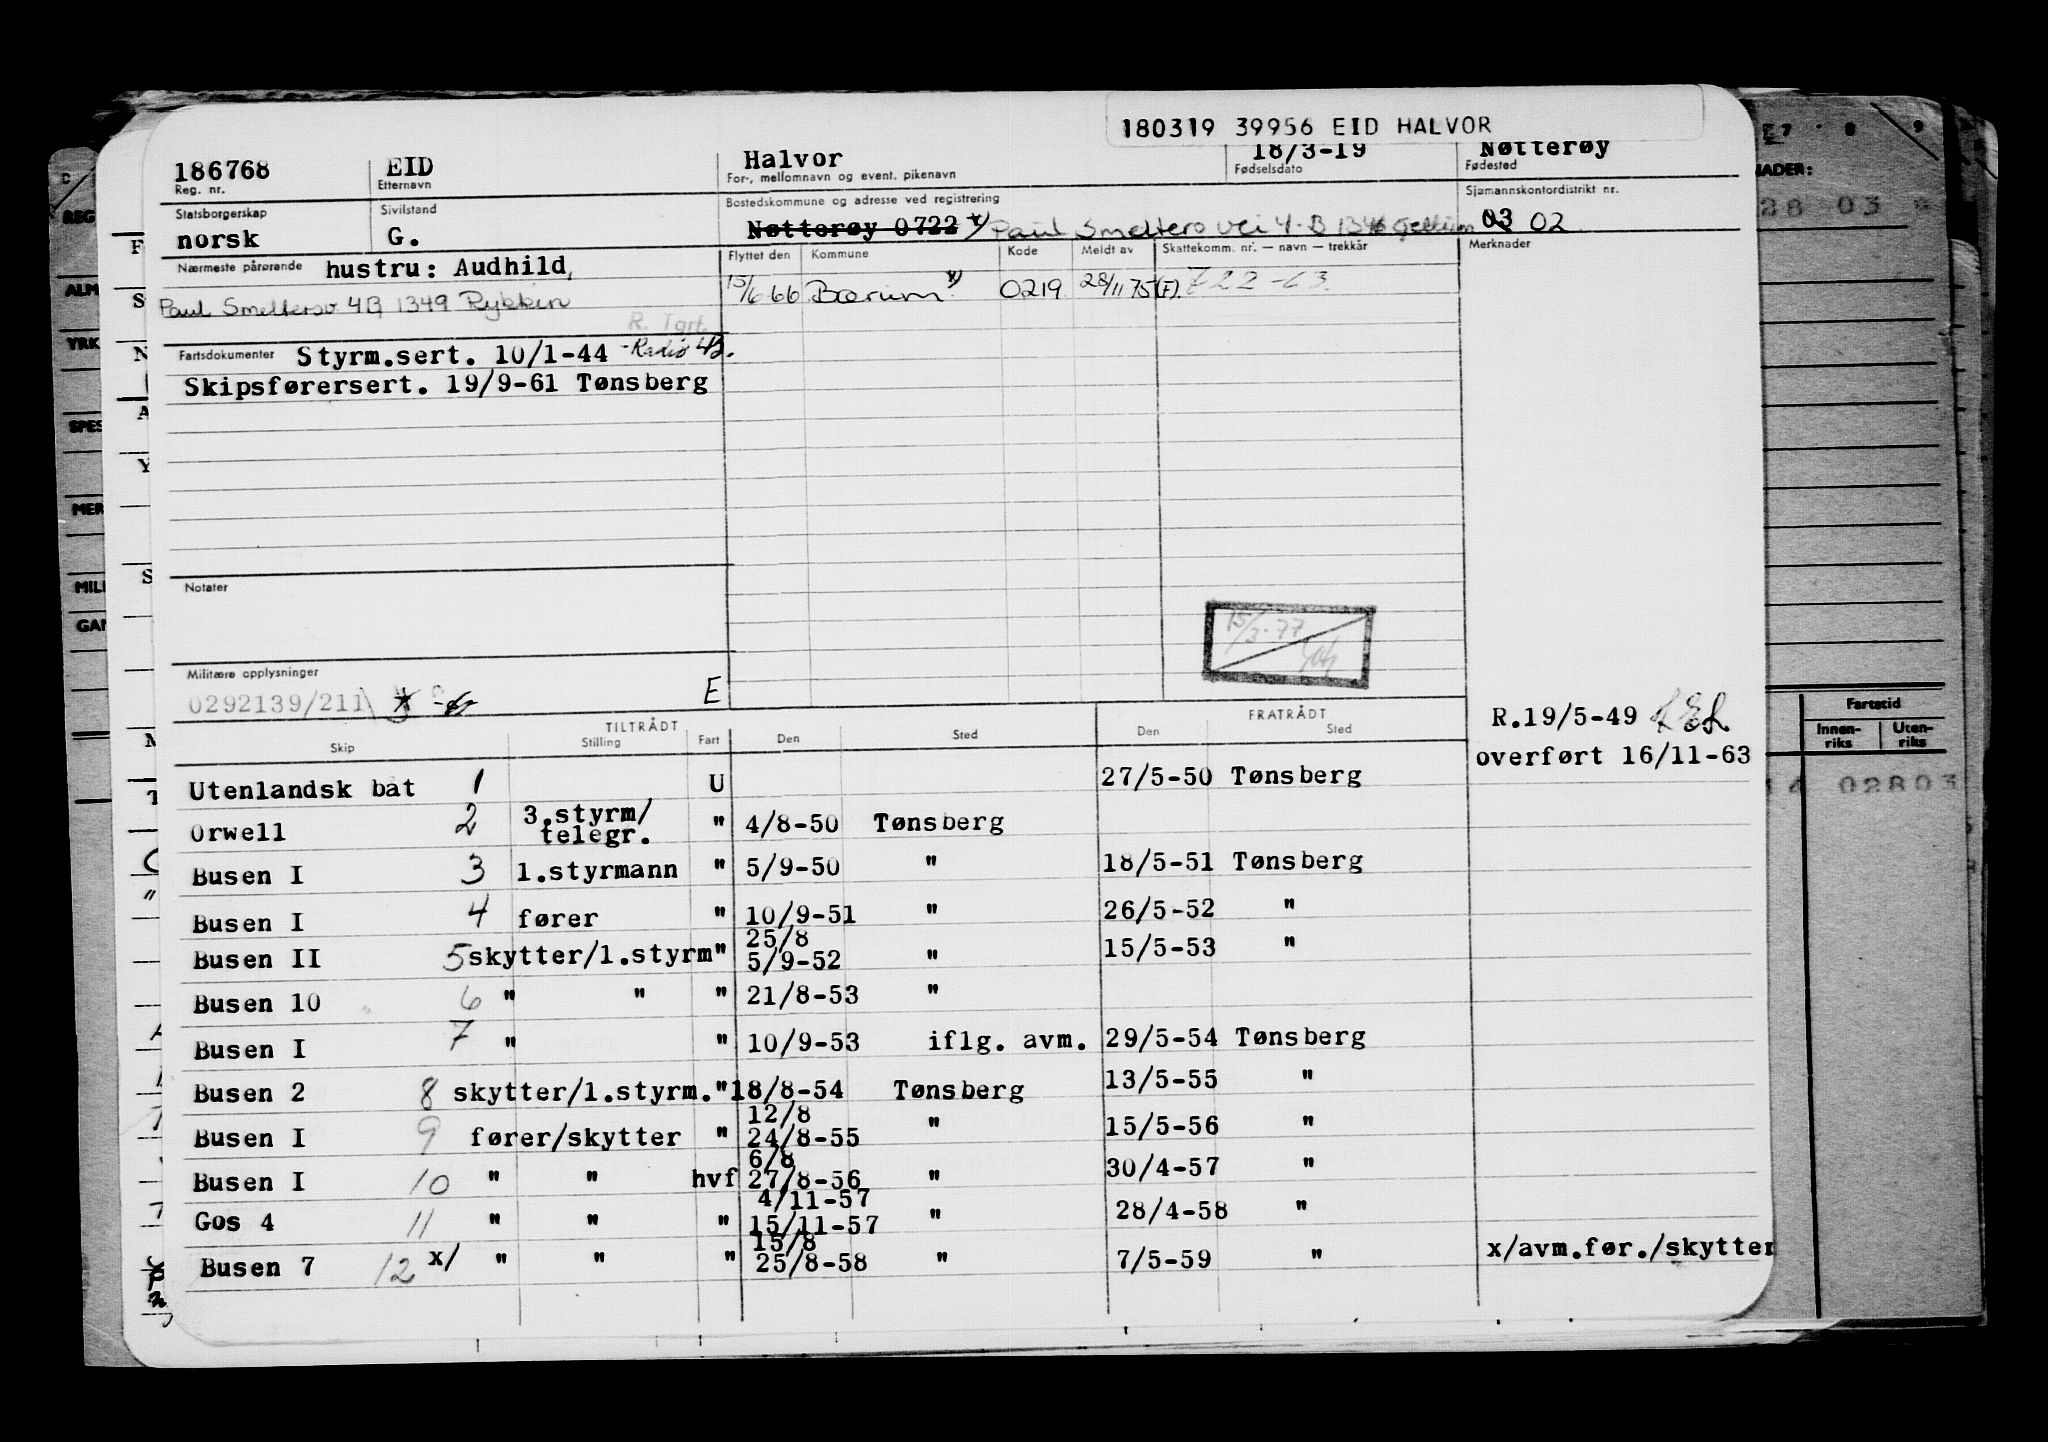 180319 39956 EID HALVOR
186768 EID Halvor 18/3-19 Nøtterøy
Reg. nr. Etternavn For-, mellomnavn og event. pikenavn Fødselsdato Fødested
Statsborgerskap Sivilstand Bostedskommune og adresse ved registrering Sjømannskontordistrikt nr.
norsk G. Nøtterøy 0722 x) Paul Smelters vei 4-B 03 02
Nærmeste pårørende hustru: Audhild, Flyttet den Kommune Kode Meldt av Skattekomm. nr. — navn — trekkår Merknader
Paul Smeltersv 4B 1349 Rykkin 15/6 66 Bærum x) 0219 28/11 75 (F). 722-63.
R. Tgrt.
Fartsdokumenter Styrm.sert. 10/1-44 -Radio
Skipsførersert. 19/9-61 Tønsberg
Notater
15/3-77
Militære opplysninger
0292139/211 E
TILTRÅDT FRATRÅDT R.19/5-49
Skip Stilling Fart Den Sted Den Sted
overført 16/11-63
Utenlandsk båt 1 U 27/5-50 Tønsberg
Orwell 2 3.styrm/ telegr. " 4/8-50 Tønsberg
Busen I 3 1.styrmann " 5/9-50 " 18/5-51 Tønsberg
Busen I 4 fører " 10/9-51 " 26/5-52 "
25/8
Busen II 5 skytter/1.styrm " 5/9-52 " 15/5-53 "
Busen 10 6 " " " 21/8-53 "
Busen I 7 " " 10/9-53 iflg. avm. 29/5-54 Tønsberg
Busen 2 8 skytter/1.styrm. " 18/8-54 Tønsberg 13/5-55 "
12/8
Busen I 9 fører/skytter " 24/8-55 " 15/5-56 "
6/8
Busen I 10 " " hvf 27/8-56 " 30/4-57 "
4/11-57
Gos 4 11 " " " 15/11-57 " 28/4-58 "
15/8
Busen 7 12 x/ " " " 25/8-58 " 7/5-59 " x/avm.før./skytter
REG
ALM
YRK
SPES
MER
MILI
GAN
7 8 9
NADER:
28 03
Fartstid
Innen-riks Uten-riks
14 02803